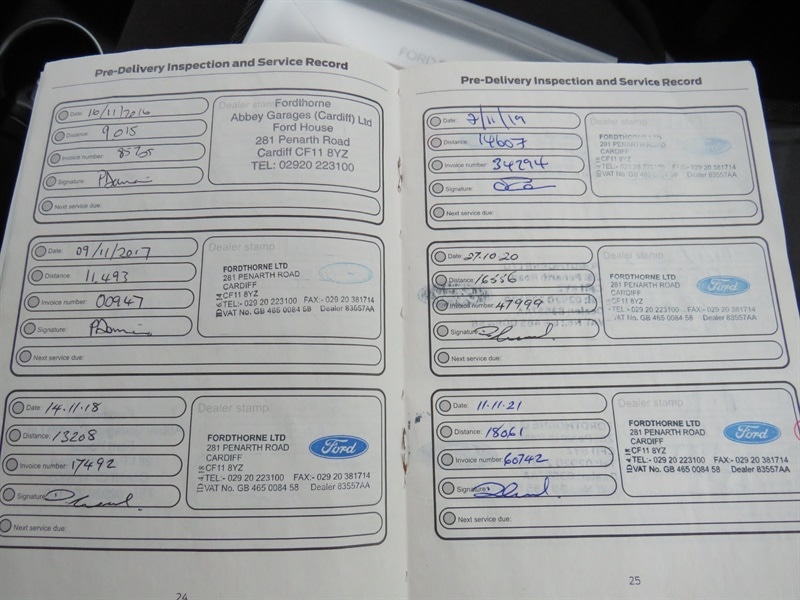 FORD
Pre-Delivery Inspection and Service Record
Date: 16/11/2016
Distance: 9015
Invoice number:
Signature:
Next service due:
Dealer stamp
Fordthorne
Abbey Garages (Cardiff) Ltd
Ford House
281 Penarth Road
Cardiff CF11 8YZ
TEL: 02920 223100
Date: 09/11/2017
Distance: 11,493
Invoice number: 00947
Signature:
Next service due:
Dealer stamp
FORDTHORNE LTD
281 PENARTH ROAD
CARDIFF
CF11 8YZ
TEL:- 029 20 223100 FAX:- 029 20 381714
VAT No. GB 465 0084 58 Dealer 83557AA
Date: 14.11.18
Distance: 13208
Invoice number: 17492
Signature:
Next service due:
Dealer stamp
FORDTHORNE LTD
281 PENARTH ROAD
CARDIFF
CF11 8YZ
TEL:- 029 20 223100 FAX:- 029 20 381714
VAT No. GB 465 0084 58 Dealer 83557AA
Ford
24
Pre-Delivery Inspection and Service Record
Date: 7/11/19
Distance: 14607
Invoice number: 34294
Signature:
Next service due:
Dealer stamp
FORDTHORNE LTD
281 PENARTH ROAD
CARDIFF
CF11 8YZ
029 20 381714
VAT No. GB 465 0084 58 Dealer 83557AA
Date: 27.10.20
Distance: 16556
Invoice number: 47999
Signature:
Next service due:
Dealer stamp
FORDTHORNE LTD
281 PENARTH ROAD
CARDIFF
CF11 8YZ
TEL:- 029 20 223100 FAX:- 029 20 381714
VAT No. GB 465 0084 58 Dealer 83557AA
Ford
Date: 11.11.21
Distance: 18061
Invoice number: 60742
Signature:
Next service due:
Dealer stamp
FORDTHORNE LTD
281 PENARTH ROAD
CARDIFF
CF11 8YZ
TEL:- 029 20 223100 FAX:- 029 20 381714
VAT No. GB 465 0084 58 Dealer 83557AA
Ford
25